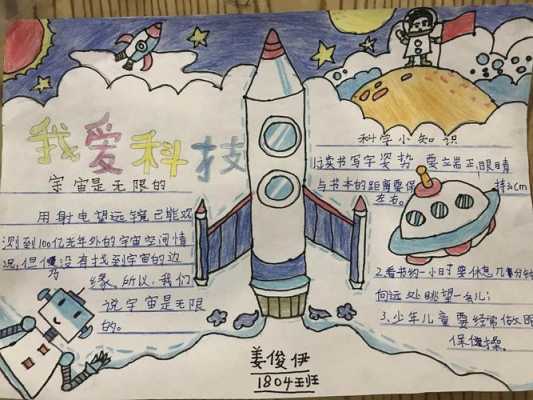 我爱科技
宇宙是无限的
用射电望远镜已能观
测到100亿光年外的宇宙空间情
况,但仍没有找到宇宙的边
为
缘,所以,我们
说宇宙是无限
的。
科学小知识
1.读书写字姿势要立岩正,眼睛
与书本的距离要保持30cm
左右。
2.看书约一小时要休息几分钟
向远处眺望一会儿;
3.少年儿童要经常做眼
保健操。
姜俊伊
1804班